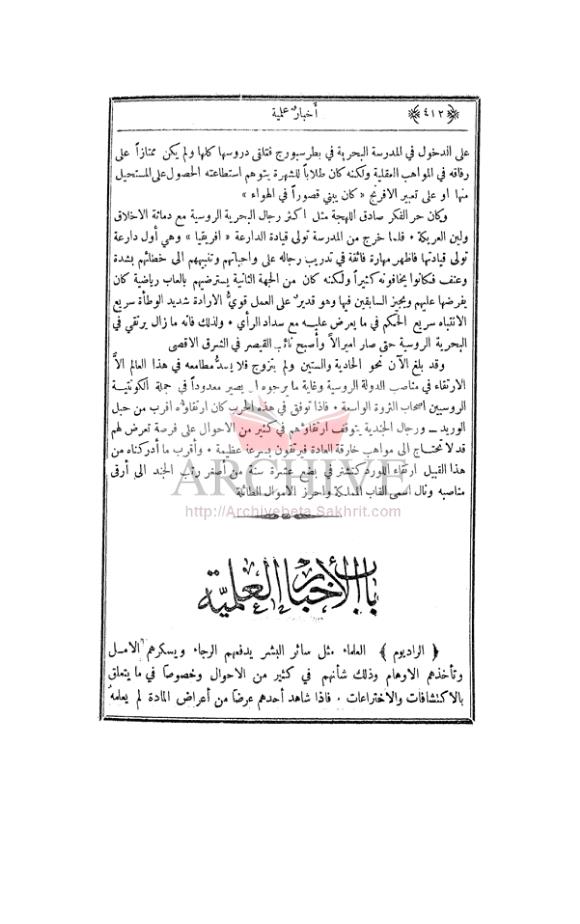 ٤١٢
أخبار علمية
على الدخول في المدرسة البحرية في بطرسبورج فتلقى دروسها كلها ولم يكن ممتازاً على
رفاقه في المواهب العقلية ولكنه كان طلاباً للشهرة يتوهم استطاعته الحصول على المستحيل
منها او على تعبير الافرنج « كان يبني قصوراً في الهواء »
وكان حر الفكر صادق اللهجة مثل اكثر رجال البحرية الروسية مع دماثة الاخلاق
ولين العريكة ٠ فلما خرج من المدرسة تولى قيادة الدارعة « افريقيا » وهي أول دارعة
تولى قيادتها فاظهر مهارة فائقة في تدريب رجاله على واجباتهم وتنبيههم الى خطائهم بشدة
وعنف فكانوا يخافونه كثيراً ولكنه كان من الجهة الثانية يسترضيهم بالعاب رياضية كان
يفرضها عليهم ويجيز السابقين فيها وهو قدير على العمل قويُّ الارادة شديد الوطأة سريع
الانتباه سريع الحكم في ما يعرض عليه مع سداد الرأي ٠ ولذلك فانه ما زال يرتقي في
البحرية الروسية حتى صار اميرالاً وأصبح نائب القيصر في الشرق الاقصى
وقد بلغ الآن نحو الحادية والستين ولم يتزوج فلا يسدُّ مطامعه في هذا العالم الاَّ
الارتقاء في مناصب الدولة الروسية وغاية ما يرجوه ان يصير معدوداً في جملة الكونتية
الروسيين اصحاب الثروة الواسعة ٠ فاذا توفق في هذه الحرب كان ارتقاؤه اقرب من حبل
الوريد ــ ورجال الجندية يتوقف ارتقاؤهم في كثير من الاحوال على فرصة تعرض لهم
قد لا تحتاج الى مواهب خارقة العادة فيرتقون بسرعة عظيمة ٠ وأقرب ما أدركناه من
هذا القبيل ارتقاء اللورد كتشنر في بضع عشرة سنة من أصغر رتب الجند الى أرقى
مناصبه ونال اسمى القاب المملكة واحرز الاموال الطائلة
ARCHIVE
http://Archivebeta.Sakhrit.com
باب الأخبار العلمية
﴿ الراديوم ﴾ العلماء مثل سائر البشر يدفعهم الرجاء ويسكرهم الامل
وتأخذهم الاوهام وذلك شأنهم في كثير من الاحوال وخصوصاً في ما يتعلق
بالاكتشافات والاختراعات ٠ فاذا شاهد أحدهم عرضاً من أعراض المادة لم يعلمه